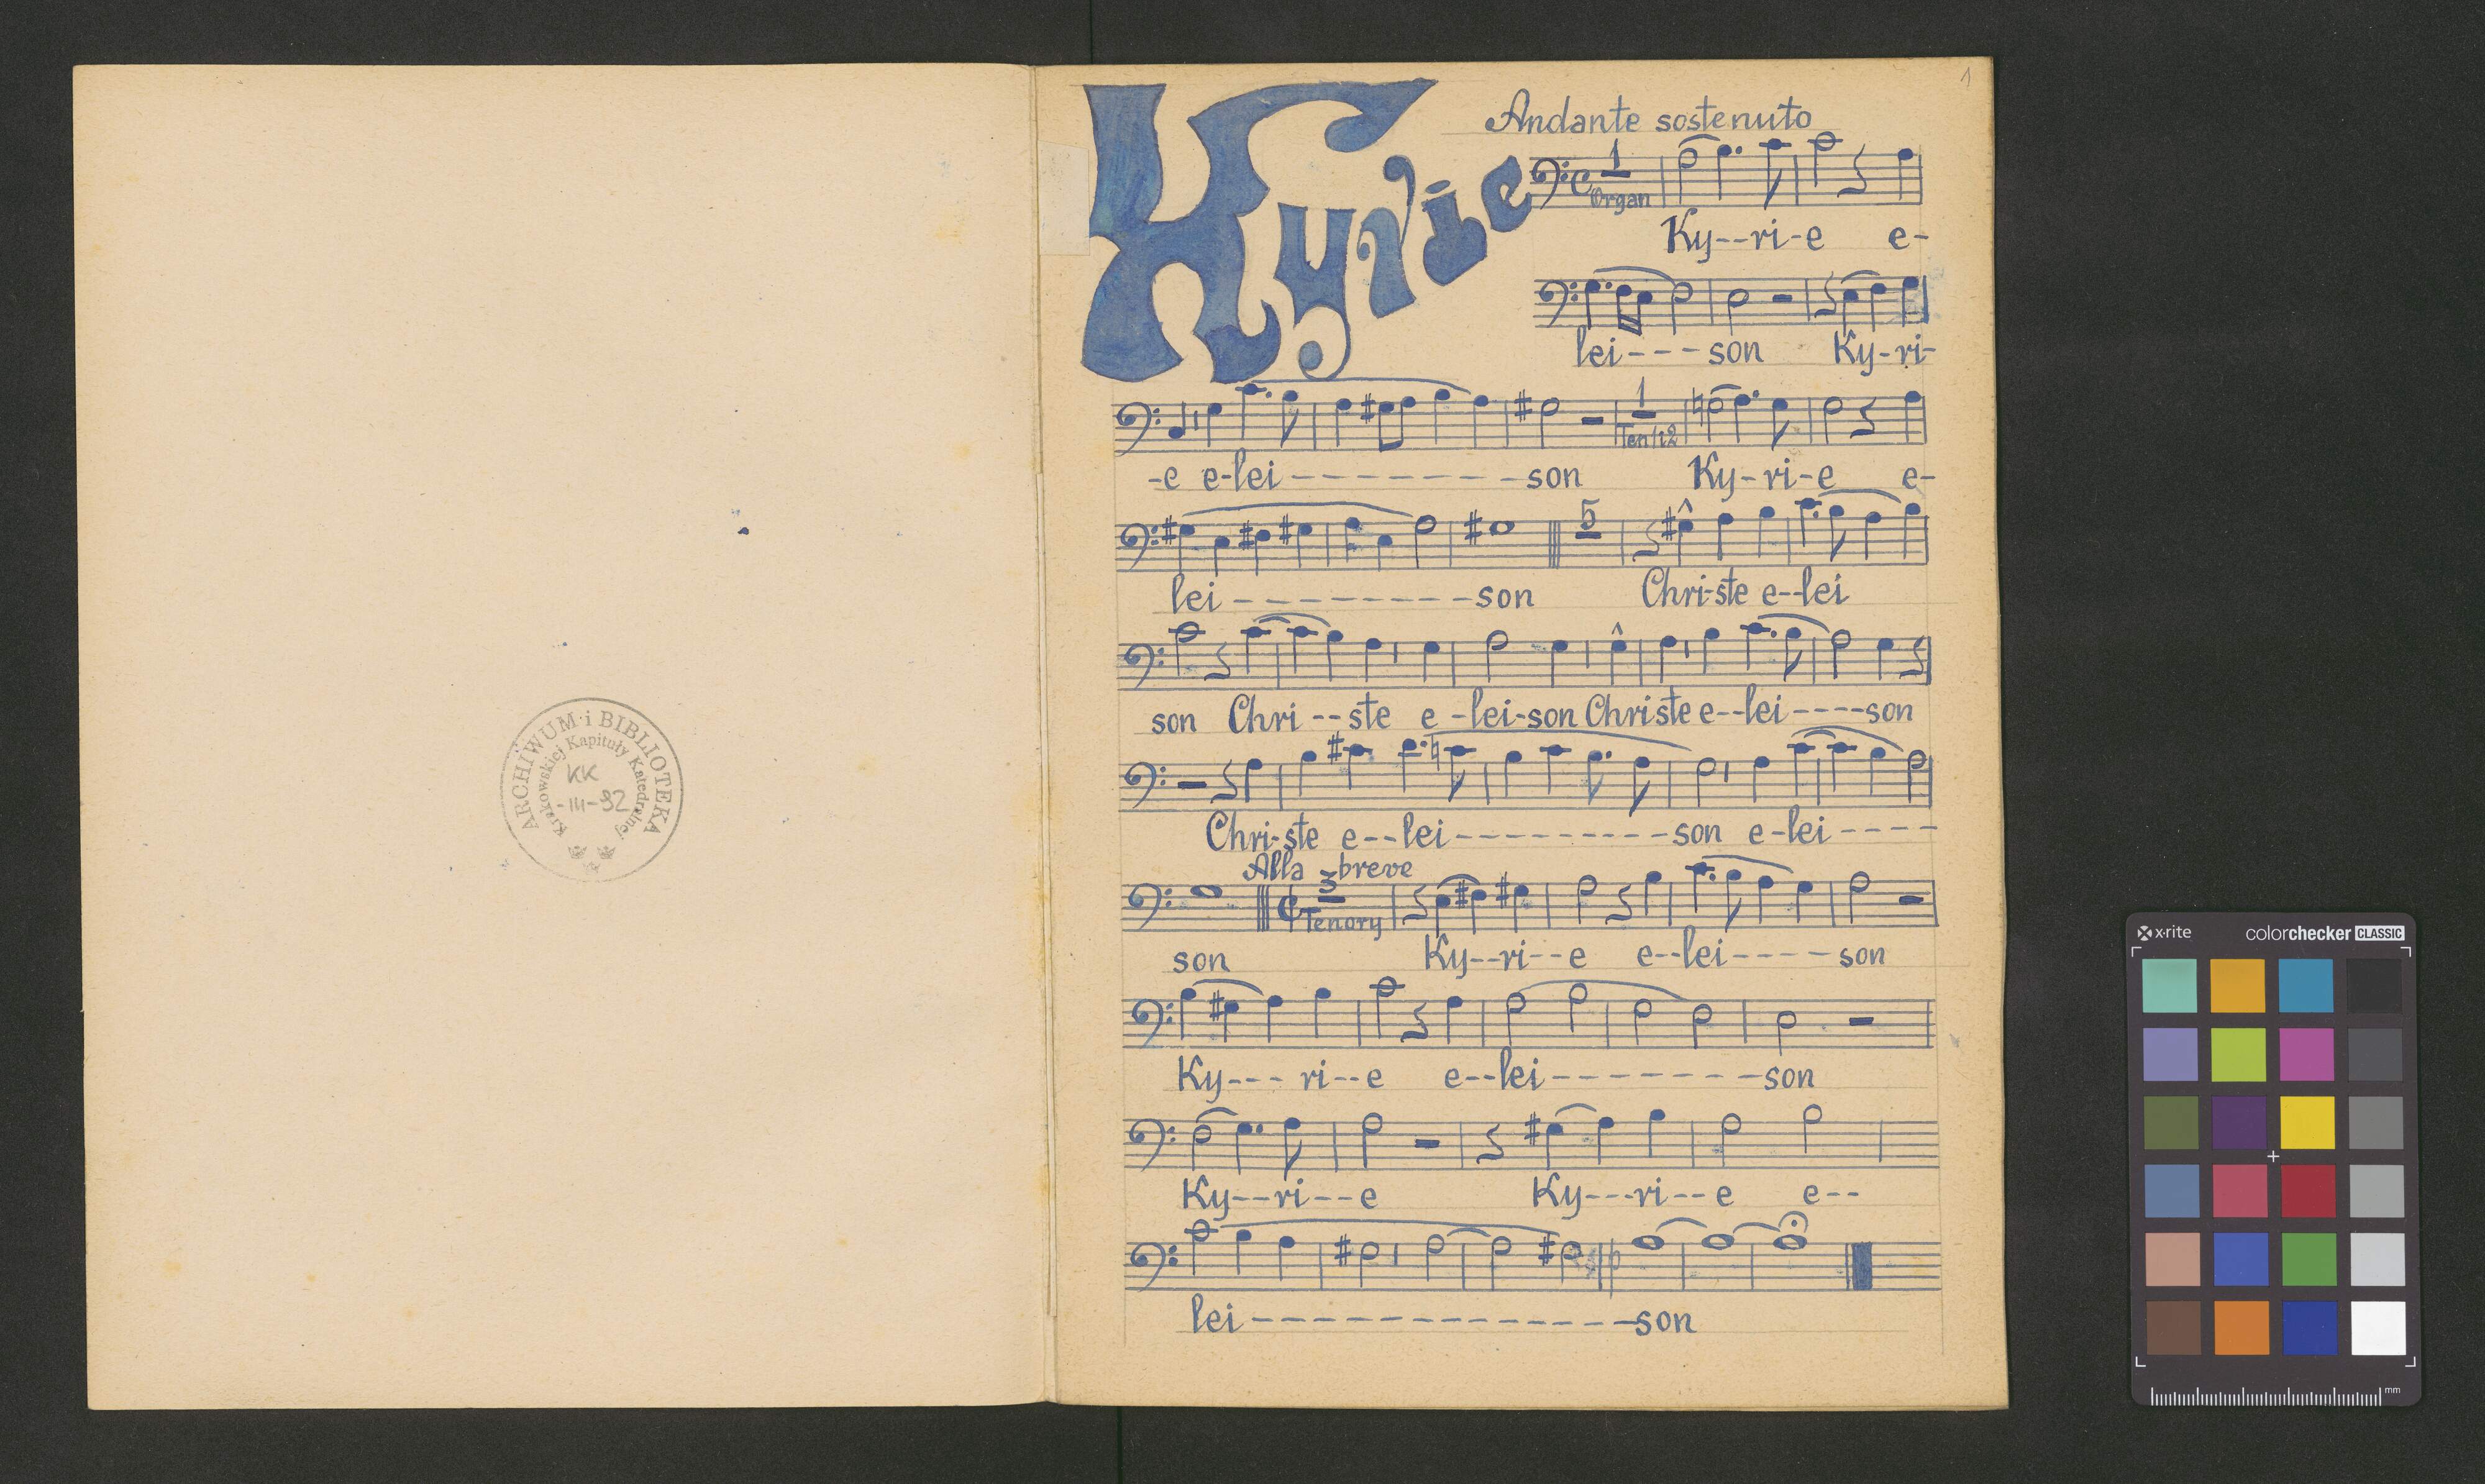 ARCHIWUM i BIBLIOTEKA
Krakowskiej Kapituły Katedralnej
KK
-III-92
1
Kyrie
Andante sostenuto
1
Organ
Ky--ri-e e-
lei---son Ky-ri-
1
-e e-lei--------son Ky-ri-e e-
5
lei----------son Chri-ste e--lei
son Chri--ste e-lei-son Christe e--lei----son
Chri-ste e--lei----------son e-lei----
Alla breve
3
Tenory
son Ky--ri--e e--lei----son
Ky--- ri--e e--lei--------son
Ky--ri--e Ky---ri--e e--
lei---------------son
x-rite
colorchecker CLASSIC
mm